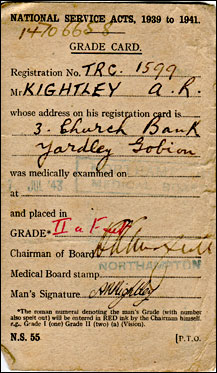 NATIONAL SERVICE ACTS, 1939 to 1941.
14706658
GRADE CARD.
Registration No. TRC. 1599
Mr KIGHTLEY A.R.
whose address on his registration card is
3. Church Bank
Yardley Gobion
was medically examined on
at
and placed in
GRADE* II a Feet
Chairman of Board
NORTHAMPTON
Medical Board stamp
Man's Signature ARKightley
*The roman numeral denoting the man's Grade (with number
also spelt out) will be entered in RED ink by the Chairman himself,
e.g., Grade I (one) Grade II (two) (a) (Vision).
N.S. 55 [P.T.O.